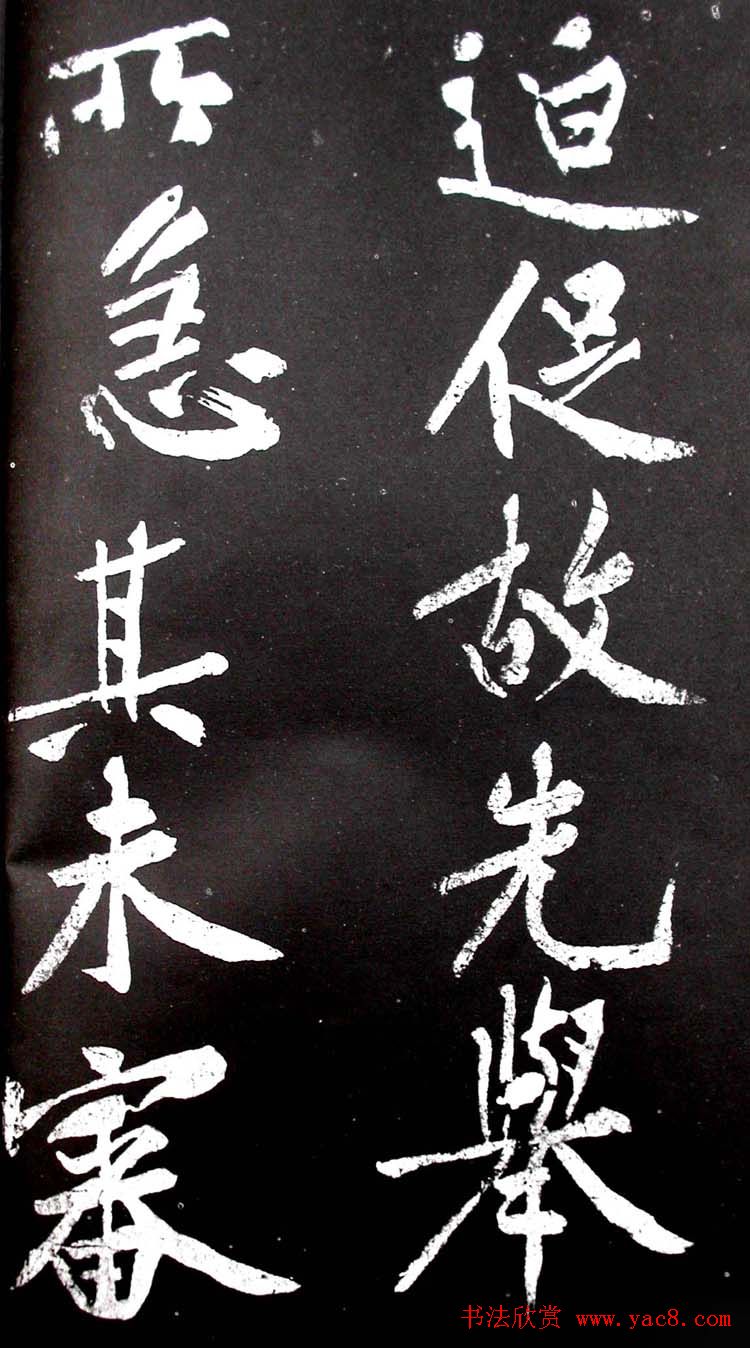 迫促故先舉
所急其未審
书法欣赏 www.yac8.com